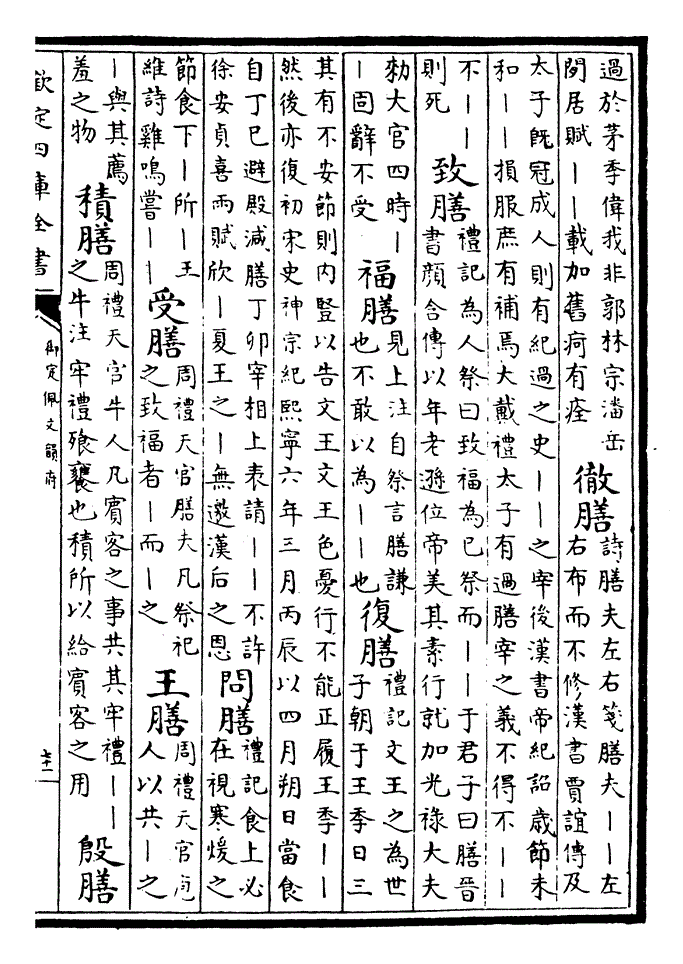 過於茅季偉我非郭林宗潘岳
閒居賦——載加舊痾有痊
徹膳
詩膳夫左右箋膳夫——左
右布而不修漢書賈誼傳及
太子既冠成人則有紀過之史——之宰後漢書帝紀詔歳節未
和——損服庶有補焉大戴禮太子有過膳宰之義不得不——
不——
則死
致膳
禮記為人祭曰致福為已祭而——于君子曰膳晉
書顔含傳以年老遜位帝美其素行就加光祿大夫
勑大官四時—
—固辭不受
福膳
見上注自祭言膳謙
也不敢以為——也
復膳
禮記文王之為世
子朝于王季日三
其有不安節則内豎以告文王文王色憂行不能正履王季——
然後亦復初宋史神宗紀熙寧六年三月丙辰以四月朔日當食
自丁巳避殿減膳丁卯宰相上表請——不許
徐安貞喜雨賦欣—夏王之—無邀漢后之恩
問膳
禮記食上必
在視寒煖之
節食下—所—王
維詩雞鳴嘗——
受膳
周禮天官膳夫凡祭祀
之致福者—而—之
王膳
周禮天官庖
人以共—之
—與其薦
羞之物
積膳
周禮天官牛人凡賓客之事共其牢禮——
之牛注牢禮飱饔也積所以給賓客之用
殷膳
欽定四庫全書
御定佩文韻府